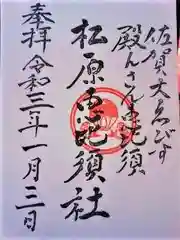 佐賀大ゑびす
殿んさん恵比須
松原恵比須社
奉拝 令和三年一月三日